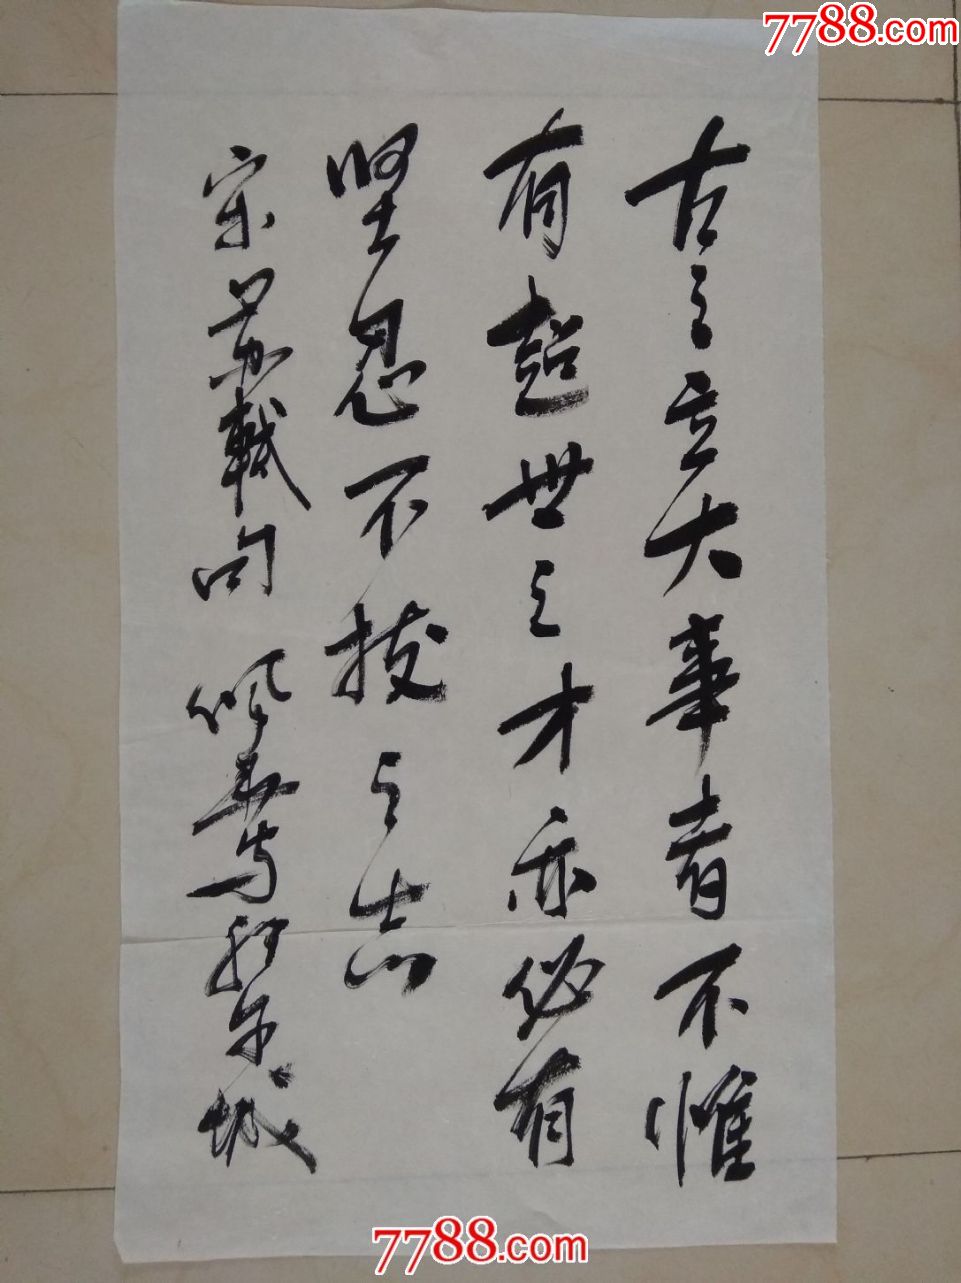 7788.com
古之立大事者不惟
有超世之才亦必有
坚忍不拔之志
宋苏轼句
城
7788.com